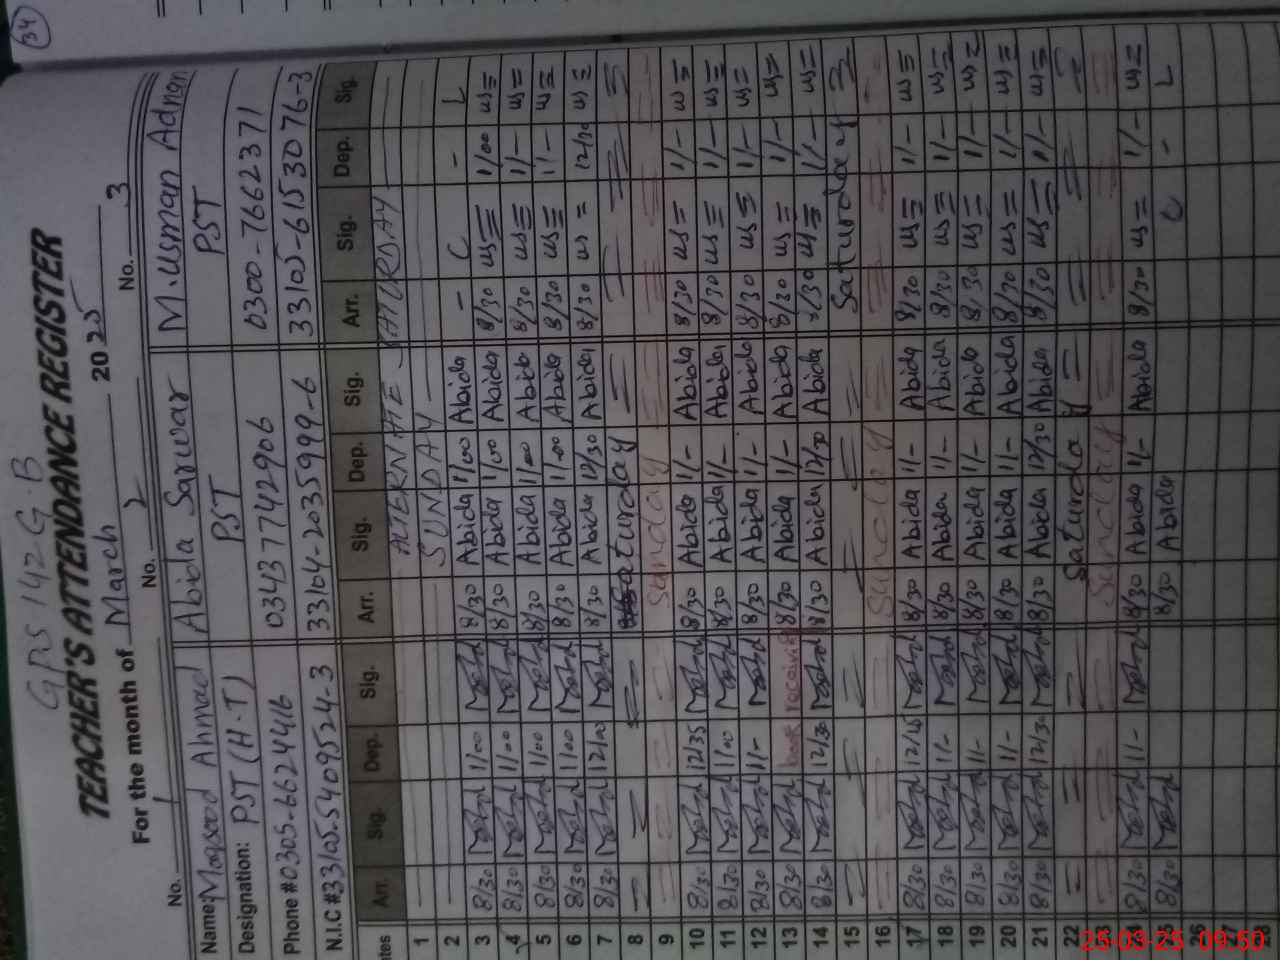 34
GPS 142 G.B
TEACHER'S ATTENDANCE REGISTER
For the month of March 2025
No. 1 No. 2 No. 3
Name: Maqsood Ahmad Abida Sarwar M. Usman Adnan
Designation: PST (H.T) PST PST
Phone # 0305-6624416 03437742906 0300-7662371
N.I.C # 33105.5409524-3 33104-2035999-6 33105-6153076-3
Arr. Sig. Dep. Sig. Arr. Sig. Dep. Sig. Arr. Sig. Dep. Sig.
1 ALTERNATE SATURDAY
2 SUNDAY
3 8/30 1/00 8/30 Abida 1/00 Abida - C - L
4 8/30 1/00 8/30 Abida 1/00 Abida 8/30 us 1/00 us
5 8/30 1/00 8/30 Abida 1/00 Abida 8/30 us 1/- us
6 8/30 1/00 8/30 Abida 1/00 Abida 8/30 us 1/- us
7 8/30 12/00 8/30 Abida 12/30 Abida 8/30 us 12/30 us
8 Saturday
9 Sunday
10 8/30 12/35 8/30 Abida 1/- Abida 8/30 us 1/- us
11 8/30 1/00 8/30 Abida 1/- Abida 8/30 us 1/- us
12 8/30 1/- 8/30 Abida 1/- Abida 8/30 us 1/- us
13 8/30 book receiving 8/30 Abida 1/- Abida 8/30 us 1/- us
14 8/30 12/30 8/30 Abida 12/30 Abida 8/30 us 1/- us
15 Saturday
16 Sunday
17 8/30 12/45 8/30 Abida 1/- Abida 8/30 us 1/- us
18 8/30 1/- 8/30 Abida 1/- Abida 8/30 us 1/- us
19 8/30 1/- 8/30 Abida 1/- Abida 8/30 us 1/- us
20 8/30 1/- 8/30 Abida 1/- Abida 8/30 us 1/- us
21 8/30 12/30 8/30 Abida 12/30 Abida 8/30 us 1/- us
22 Saturday
23 Sunday
24 8/30 1/- 8/30 Abida 1/- Abida 8/30 us 1/- us
25 8/30 8/30 Abida C - L
26
27
28
25-03-25 09:50